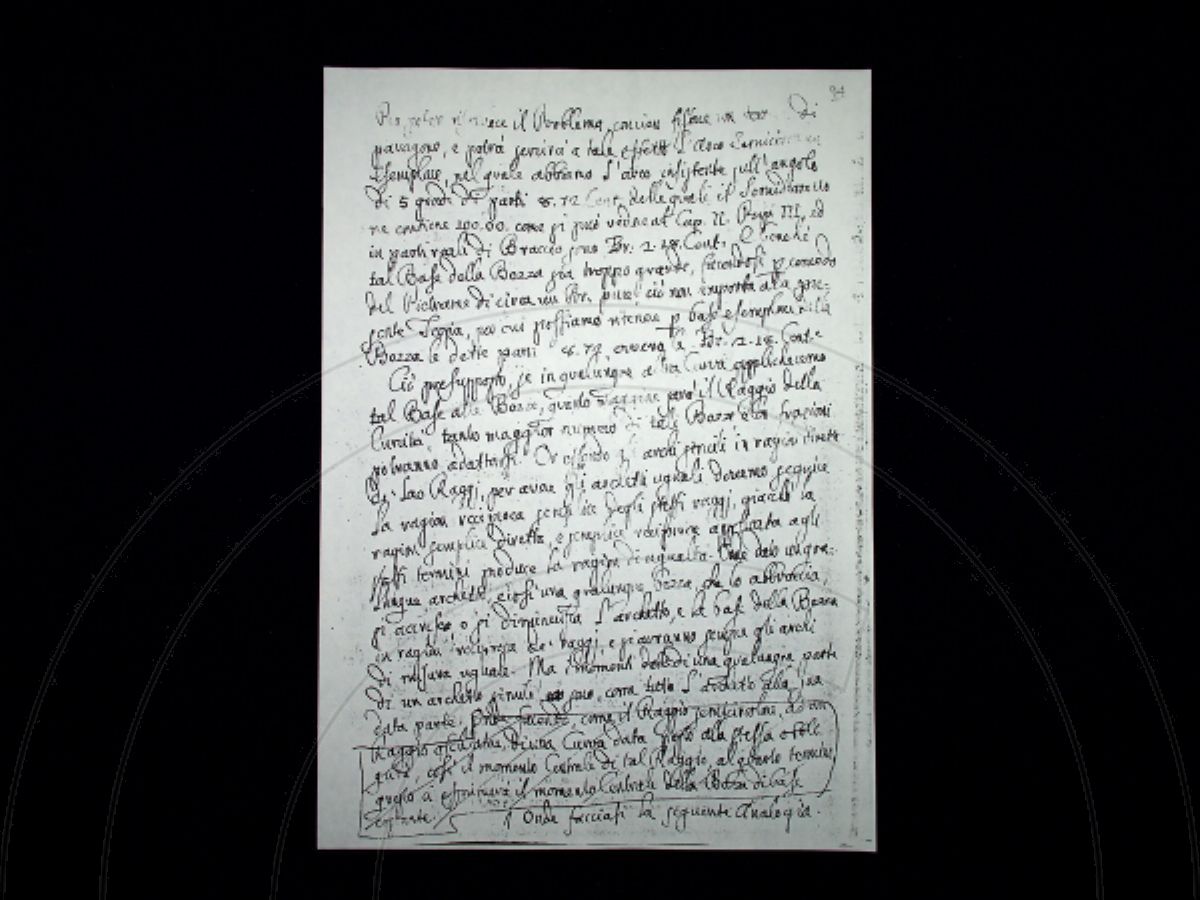 94
Per poter risolvere il Problema, convien fissare un di
paragone, e potrà servirci a tale effetto l'Arco Semicircolare
Esemplare, nel quale abbiamo l'arco insistente sull'angolo
di 5 gradi di parti 8. 72 Cent. delle quali il Semidiametro
ne contiene 100.00. come si può vedere al Cap. II. III, ed
in parti reali di Braccio sono Br: 2. 18. Cent. E benché
tal Base della Bozza sia troppo grande, facendosi p comodo
del di circa un Br. pure ciò non importa alla pre-
sente Teoria, per cui possiamo ritenere p base esemplare della
Bozza le dette parti 8. 72, ovvero Br. 2. 18. Cent.
Ciò presupposto, se in qualunque altra Curva applicheremo
tal Base alle Bozze, quanto maggiore sarà il Raggio della
Curvità tanto maggior numero di tali Bozze e lor frazioni
potranno adattarsi. Or essendo gli archi simili in ragion diretta
de' suo Raggi, per avere gli archetti uguali dovremo seguire
la ragion reciproca semplice degli stessi raggi, giacchè la
ragion semplice diretta, e semplice reciproca applicata agli
stessi termini produce la ragion di ugualtà. Onde dato un qua-
lunque archetto, ciosì una qualunque Bozza, che lo abbraccia,
si accresca o si diminuisca l'archetto, e la base della Bozza
in ragion reciproca de' raggi, e si avranno sempre gli archi
di misura uguale. Ma i momenti di una qualunque parte
di un archetto simile come tutto l'archetto alla sua
data parte. Onde facendo, come il Raggio semicircolare, ad un
Raggio osculatore, di una Curva data
così il momento Centrale di tal Raggio, al quarto termine
questo ci esprimerà il momento Centrale della Bozza di base
Onde facciasi la seguente Analogia.